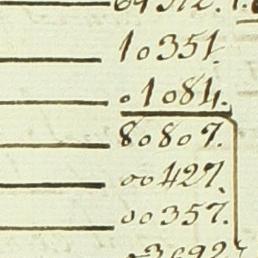 10351.
01084.
80807.
00427.
00357.